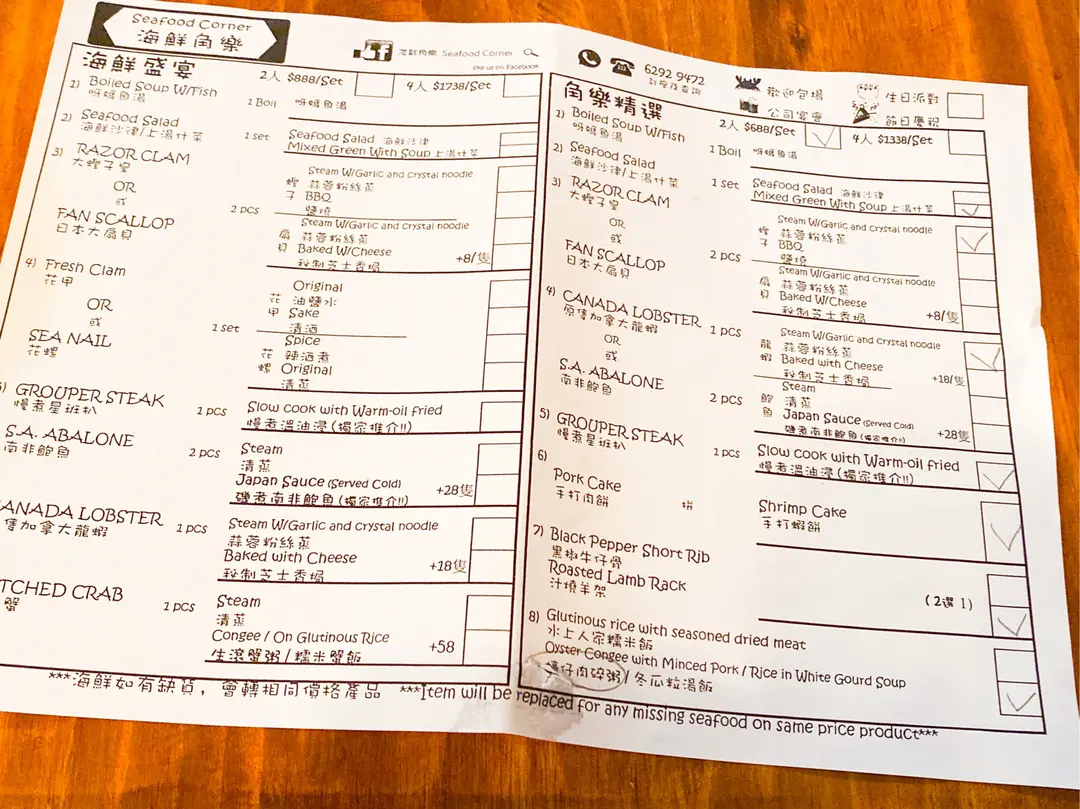 Seafood Corner
海鮮角樂
海鮮角樂 Seafood Corner
like us on Facebook
海鮮盛宴
2人 $888/Set
4人 $1738/Set
1) Boiled Soup W/Fish
呀媽魚湯
1 Boil 呀媽魚湯
2) Seafood Salad
海鮮沙律/上湯什菜
1 set
Seafood Salad 海鮮沙律
Mixed Green With Soup 上湯什菜
3) RAZOR CLAM
大蟶子皇
OR
或
FAN SCALLOP
日本大扇貝
2 pcs
蟶子
Steam W/Garlic and crystal noodle
蒜蓉粉絲蒸
BBQ
鹽燒
扇貝
Steam W/Garlic and crystal noodle
蒜蓉粉絲蒸
Baked W/Cheese
秘制芝士香焗
+8/隻
4) Fresh Clam
花甲
OR
或
SEA NAIL
花螺
1 set
花甲
Original
油鹽水
Sake
清酒
花螺
Spice
辣酒煮
Original
清蒸
) GROUPER STEAK
慢煮星班扒
1 pcs
Slow cook with Warm-oil fried
慢煮溫油浸(獨家推介!!)
S.A. ABALONE
南非鮑魚
2 pcs
Steam
清蒸
Japan Sauce (Served Cold)
磯煮南非鮑魚(獨家推介!!)
+28隻
ANADA LOBSTER
隻加拿大龍蝦
1 pcs
Steam W/Garlic and crystal noodle
蒜蓉粉絲蒸
Baked with Cheese
秘制芝士香焗
+18/隻
TCHED CRAB
蟹
1 pcs
Steam
清蒸
Congee / On Glutinous Rice
生滾蟹粥/糯米蟹飯
+58
6292 9472
訂座及查詢
歡迎包場
公司宴會
生日派對
節日慶祝
角樂精選
2人 $688/Set
4人 $1338/Set
1) Boiled Soup W/Fish
呀媽魚湯
1 Boil 呀媽魚湯
2) Seafood Salad
海鮮沙律/上湯什菜
1 set
Seafood Salad 海鮮沙律
Mixed Green With Soup 上湯什菜
3) RAZOR CLAM
大蟶子皇
OR
或
FAN SCALLOP
日本大扇貝
2 pcs
蟶子
Steam W/Garlic and crystal noodle
蒜蓉粉絲蒸
BBQ
鹽燒
扇貝
Steam W/Garlic and crystal noodle
蒜蓉粉絲蒸
Baked W/Cheese
秘制芝士香焗
+8/隻
4) CANADA LOBSTER
原隻加拿大龍蝦
OR
或
S.A. ABALONE
南非鮑魚
1 pcs
2 pcs
龍蝦
Steam W/Garlic and crystal noodle
蒜蓉粉絲蒸
Baked with Cheese
秘制芝士香焗
+18/隻
鮑魚
Steam
清蒸
Japan Sauce (Served Cold)
磯煮南非鮑魚(獨家推介!!)
+28隻
5) GROUPER STEAK
慢煮星班扒
1 pcs
Slow cook with Warm-oil fried
慢煮溫油浸(獨家推介!!)
6)
Pork Cake
手打肉餅
拼
Shrimp Cake
手打蝦餅
7) Black Pepper Short Rib
黑椒牛仔骨
Roasted Lamb Rack
汁燒羊架
(2選1)
8) Glutinous rice with seasoned dried meat
水上人家糯米飯
Oyster Congee with Minced Pork / Rice in White Gourd Soup
蠔仔肉碎粥/冬瓜粒湯飯
***海鮮如有缺貨，會轉相同價格產品 ***Item will be replaced for any missing seafood on same price product***